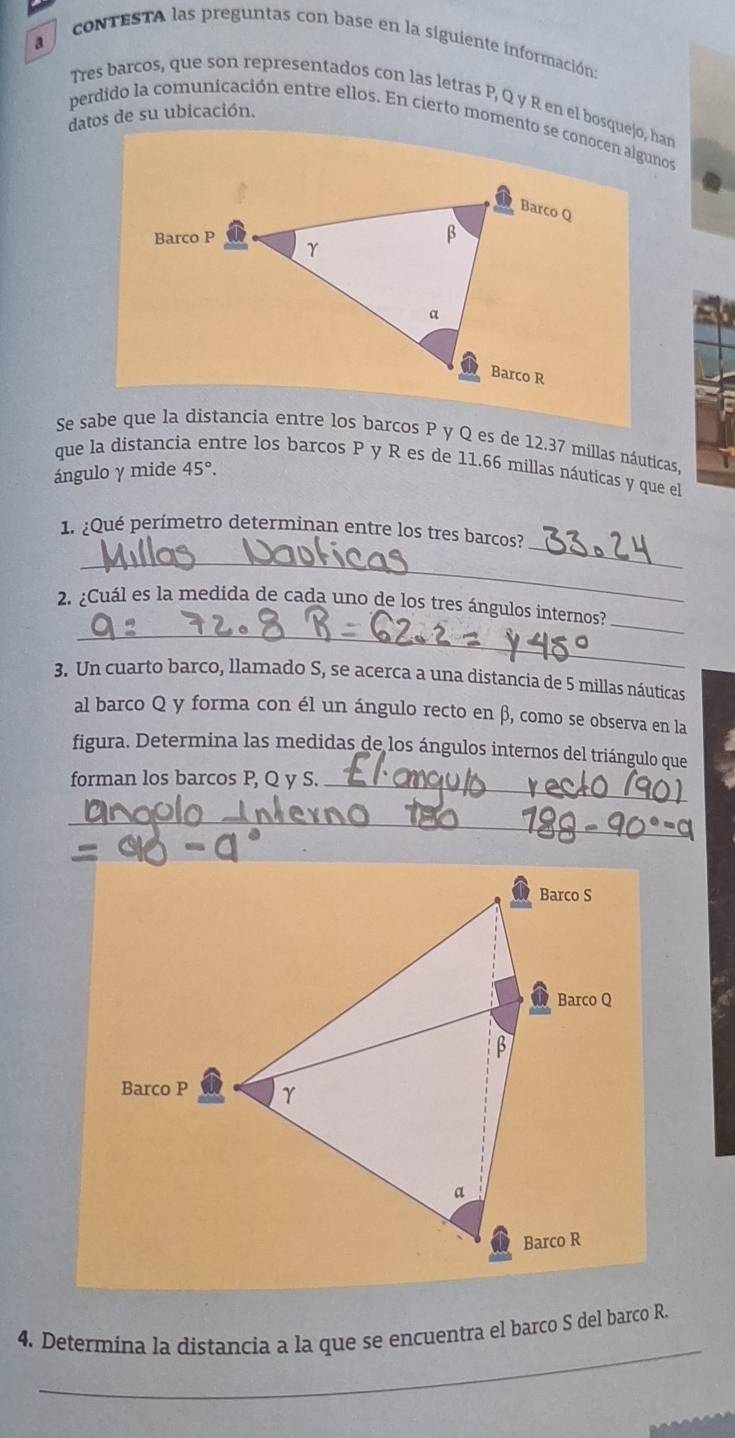 a
CONTESTA las preguntas con base en la siguiente información:
Tres barcos, que son representados con las letras P, Q y R en el bosquejo, han
perdido la comunicación entre ellos. En cierto momento se conocen algunos
datos de su ubicación.
Barco Q
Barco P
γ
β
α
Barco R
Se sabe que la distancia entre los barcos P y Q es de 12.37 millas náuticas,
que la distancia entre los barcos P y R es de 11.66 millas náuticas y que el
ángulo γ mide 45°.
1. ¿Qué perímetro determinan entre los tres barcos? 33.24
Millas Naoticas
2. ¿Cuál es la medida de cada uno de los tres ángulos internos?
a= 72.8 B = 62.2 = y 45°
3. Un cuarto barco, llamado S, se acerca a una distancia de 5 millas náuticas
al barco Q y forma con él un ángulo recto en β, como se observa en la
figura. Determina las medidas de los ángulos internos del triángulo que
forman los barcos P, Q y S. El angulo recto (90)
angolo Interno 180 188-90°-a
= 90 - a°
Barco S
Barco Q
β
Barco P
γ
α
Barco R
4. Determina la distancia a la que se encuentra el barco S del barco R.